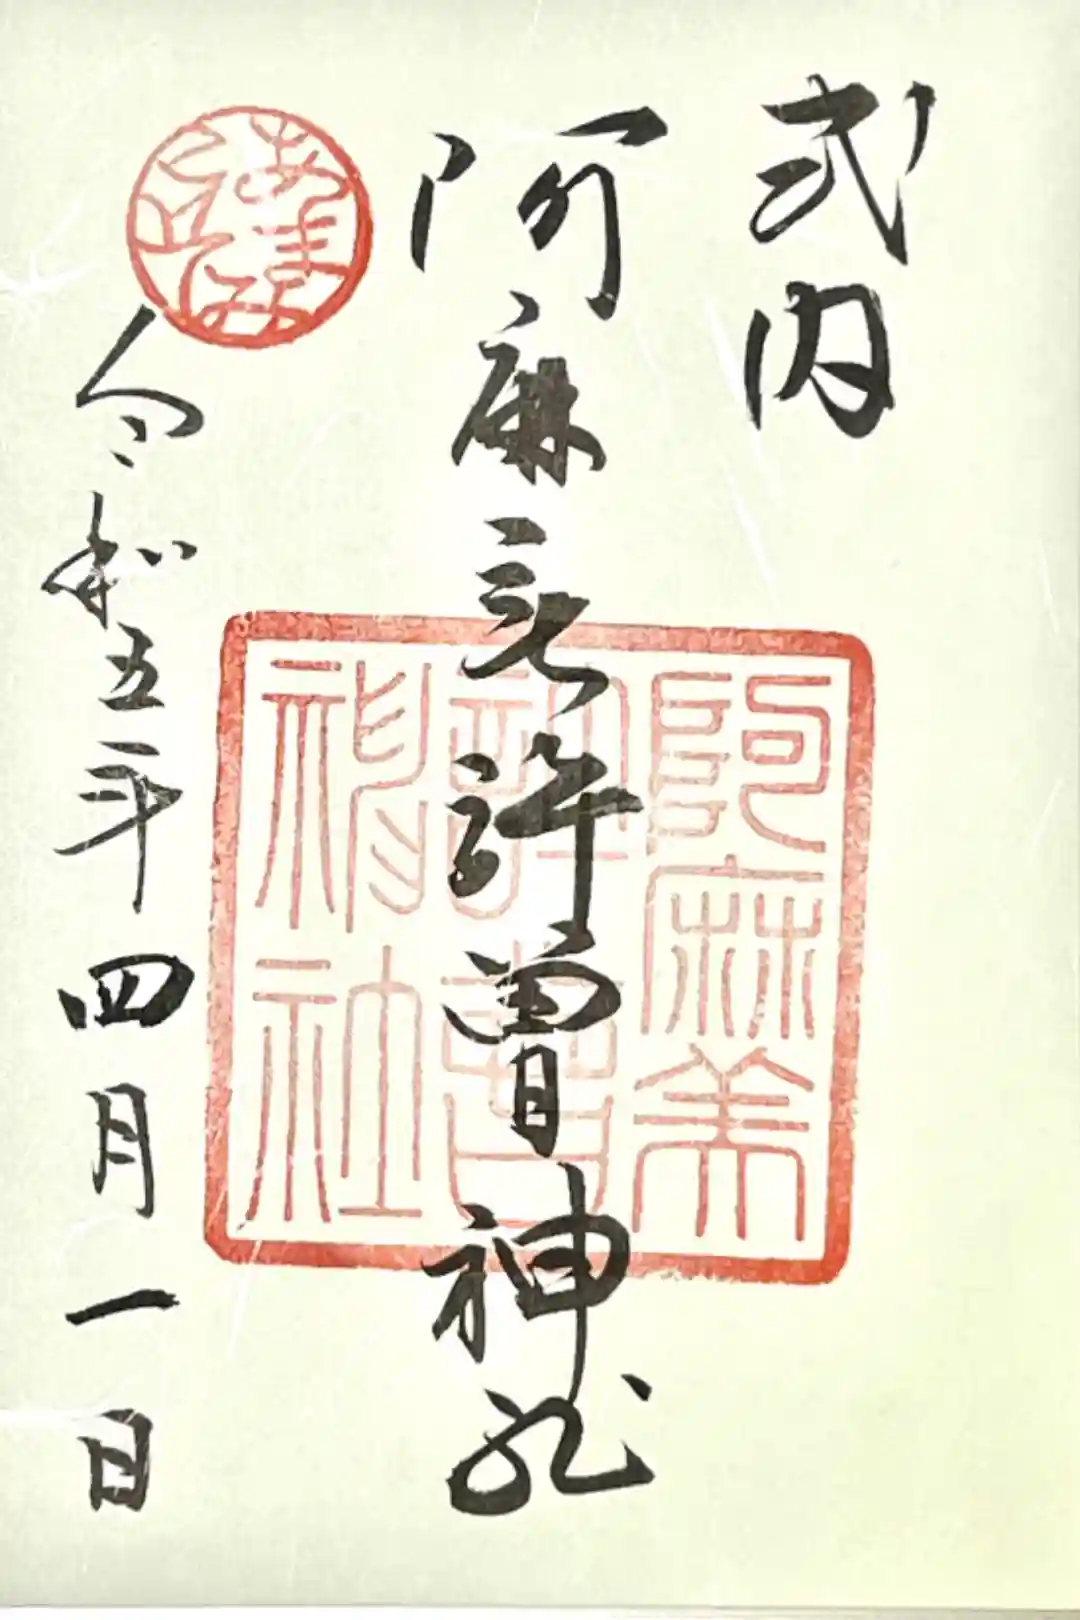 式内
阿麻美許曽神社
令和五年四月一日
阿麻美
許曽
神社
あまみ
こそ